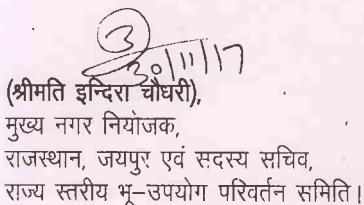 30/11/17
(श्रीमति इन्दिरा चौधरी),
मुख्य नगर नियोजक,
राजस्थान, जयपुर एवं सदस्य सचिव,
राज्य स्तरीय भू–उपयोग परिवर्तन समिति।